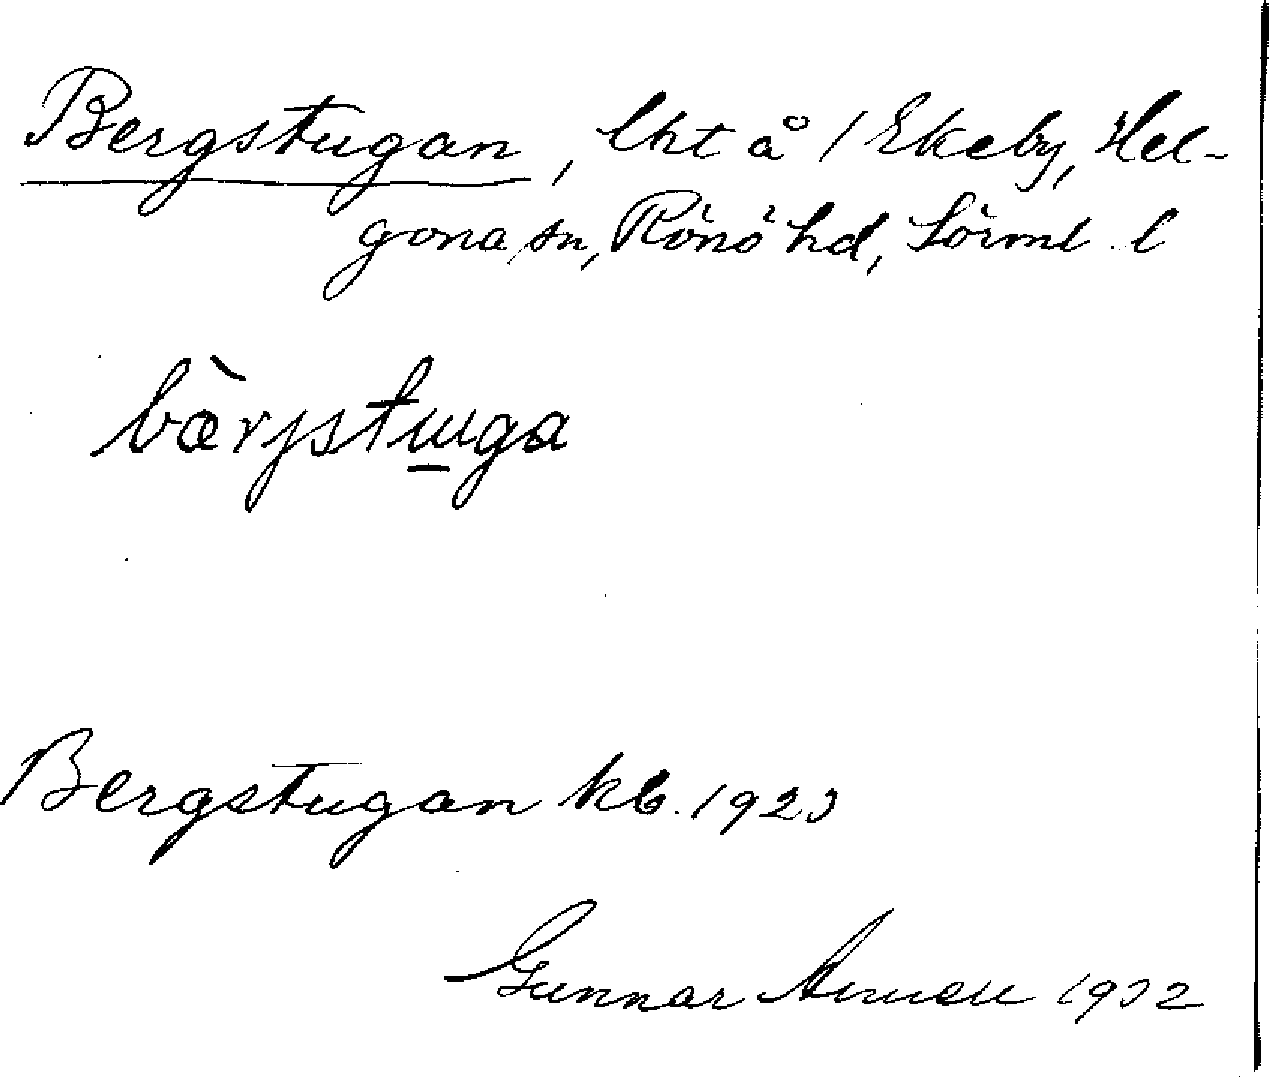 Bergstugan, lht å /Ekeby, Hel-
gona sn, Rönö hd, Sörml. l
bàrjstɯga
Bergstugan kb. 1923
Gunnar 1932